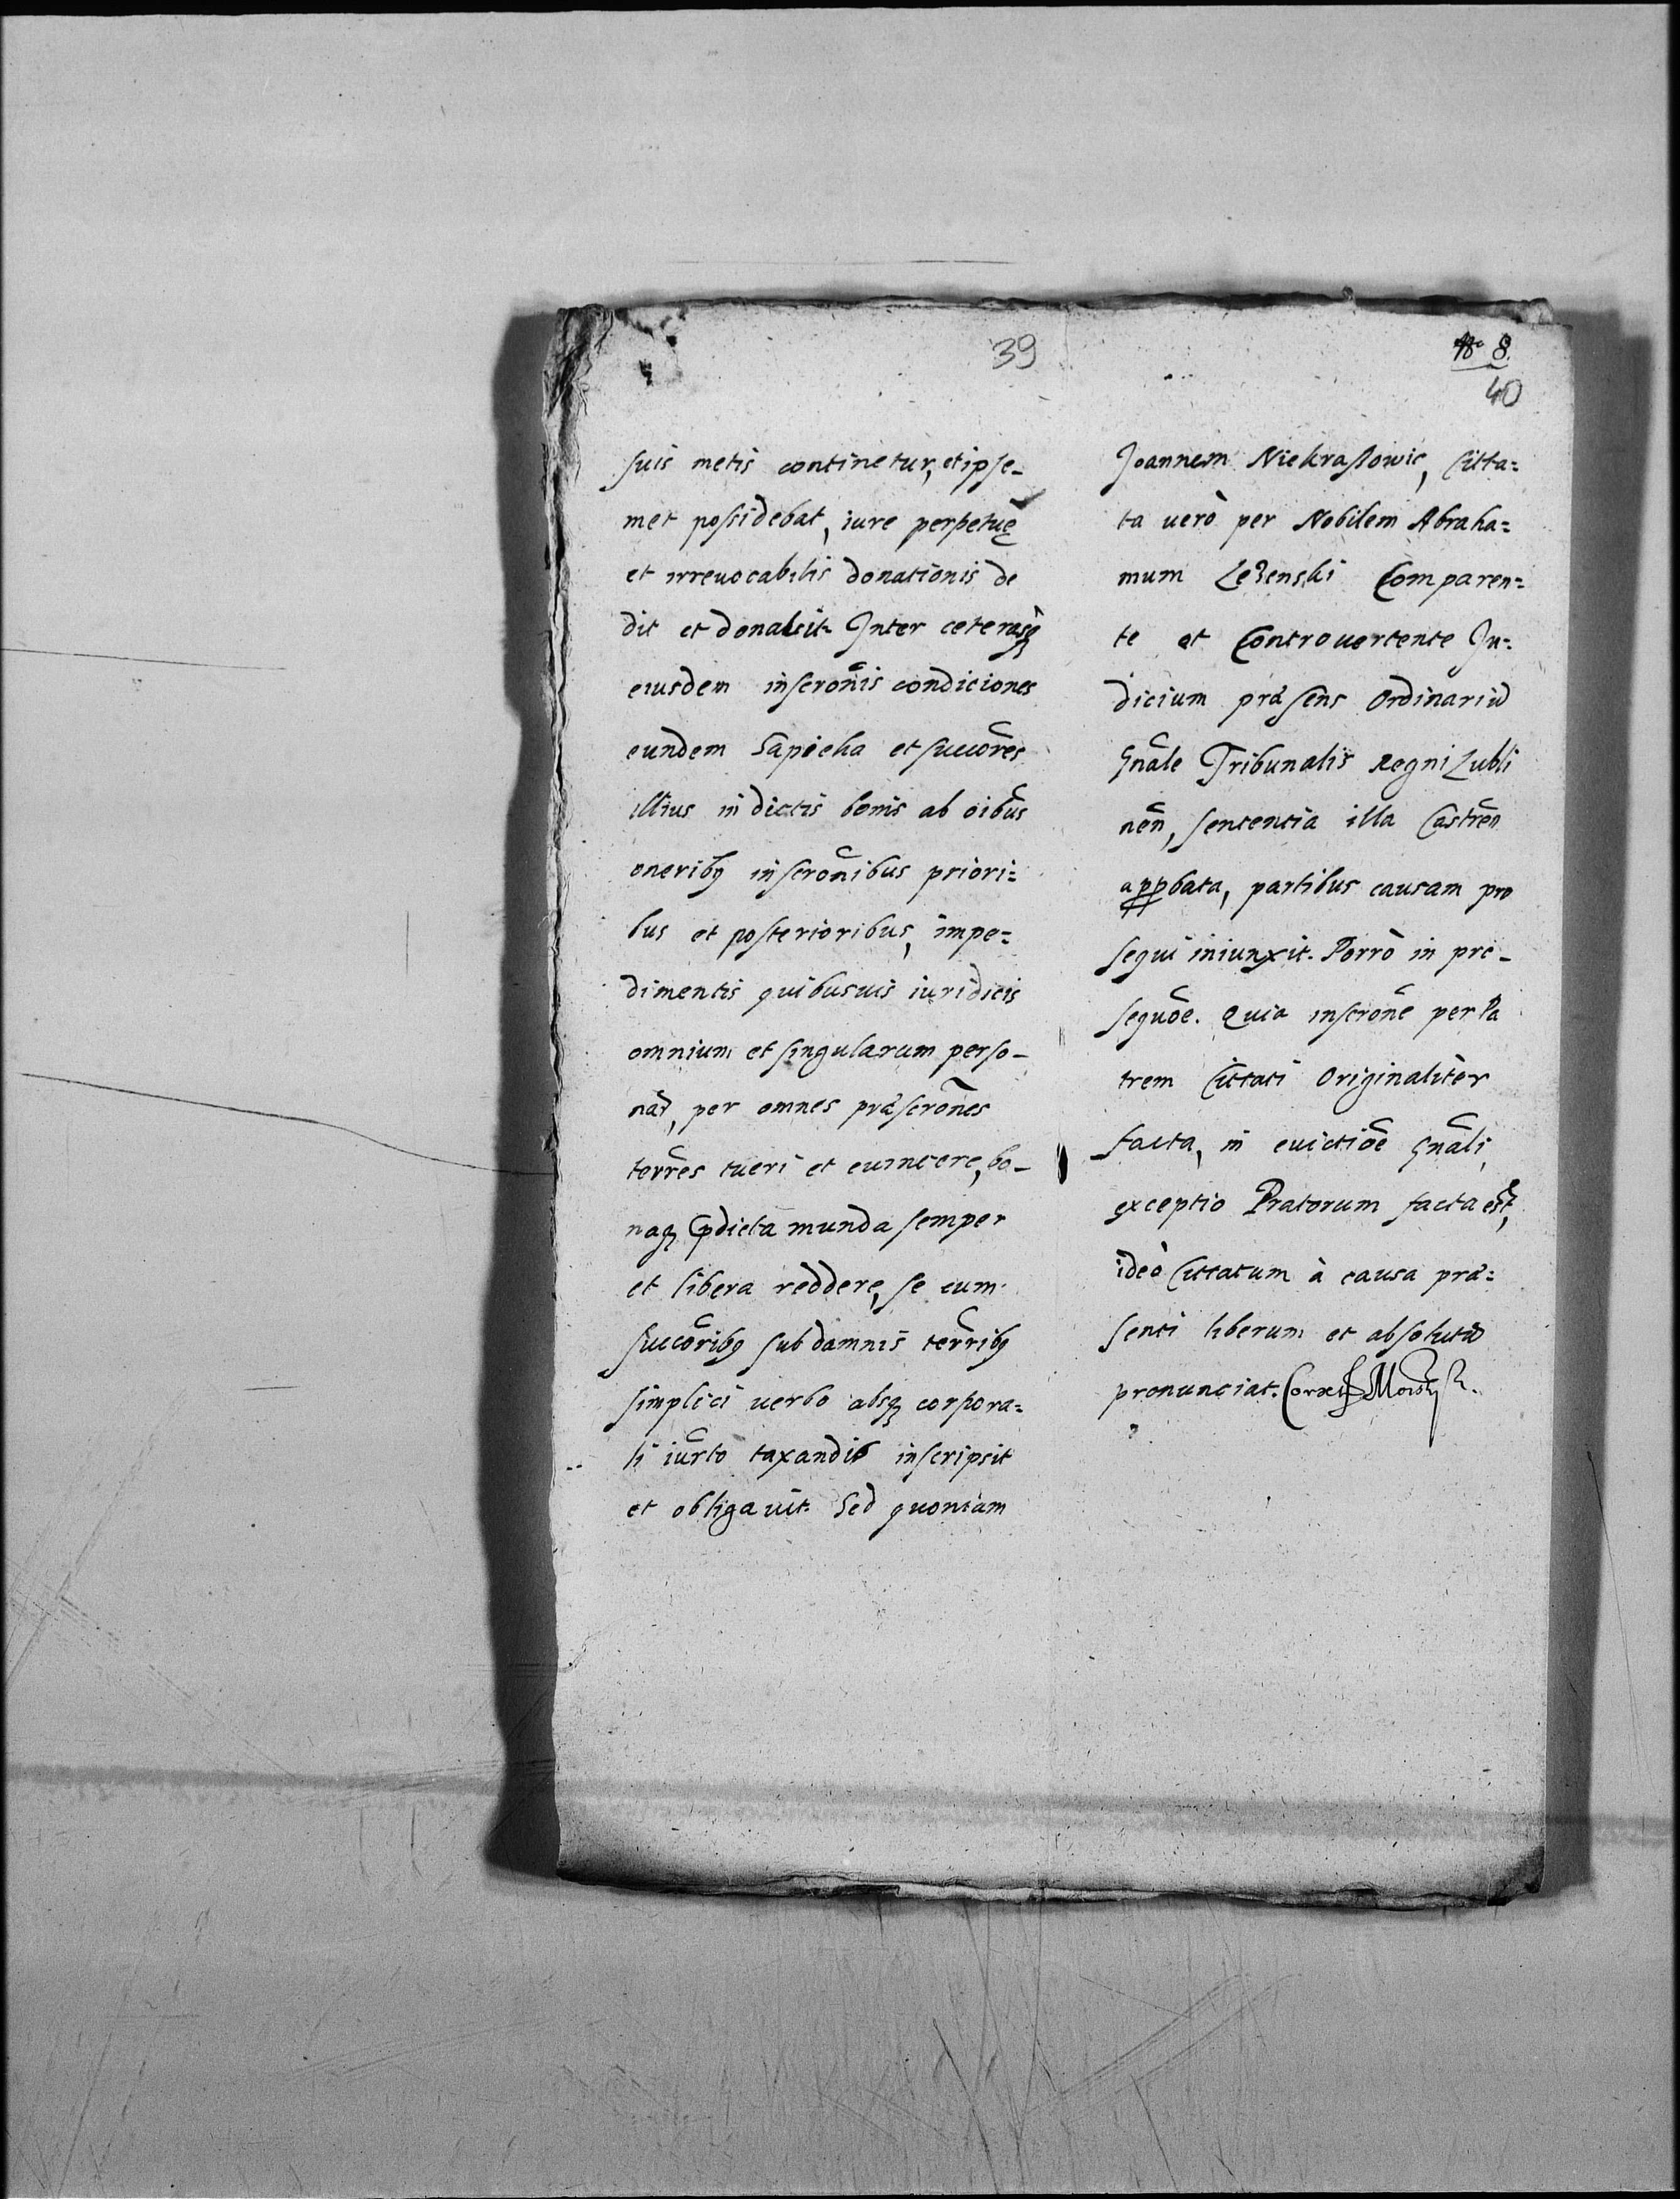 39
suis metis continetur, et ipse-
met possidebat, iure perpetuę
et irreuocabilis donationis de
dit et donauit. Inter ceterasq
eiusdem inscrōnis condiciones
eundem Sapieha et succōres
illius in dictis bonis ab oībus
oneribꝯ inscrōnibus priori=
bus et posterioribus, impe=
dimentis quibusuis iuridicis
omnium et singularum perso-
nar̄, per omnes præscrōnes
terrēs tueri et euincere, bo-
naqꝫ p̄dicta munda semper
et libera reddere, se cum
succōribꝯ sub damnis terrībꝯ
simplici uerbo absqꝫ corpora=
li iur̄to taxandis inscripsit
et obligauit. Sed quoniam
8.
40
Joannem Niekraszowic, Citta=
ta uerò per Nobilem Abraha=
mum Lezenski Comparen=
te et Controuertente Ju=
dicium præsens Ordinariū
Gnāle Tribunalis Regni Lubli
nēn, sentencia illa Castrēn
apꝓbata, partibus causam pro
sequi iniunxit. Porrò in pro-
sequōe. Quia inscrōne per Pa
trem Cittati Originalitèr
facta, in euictiōe Gnāli,
exceptio Pratorum facta est,
ideò Cittatum à causa præ=
senti liberum et absolutū
pronunciat. Correxit